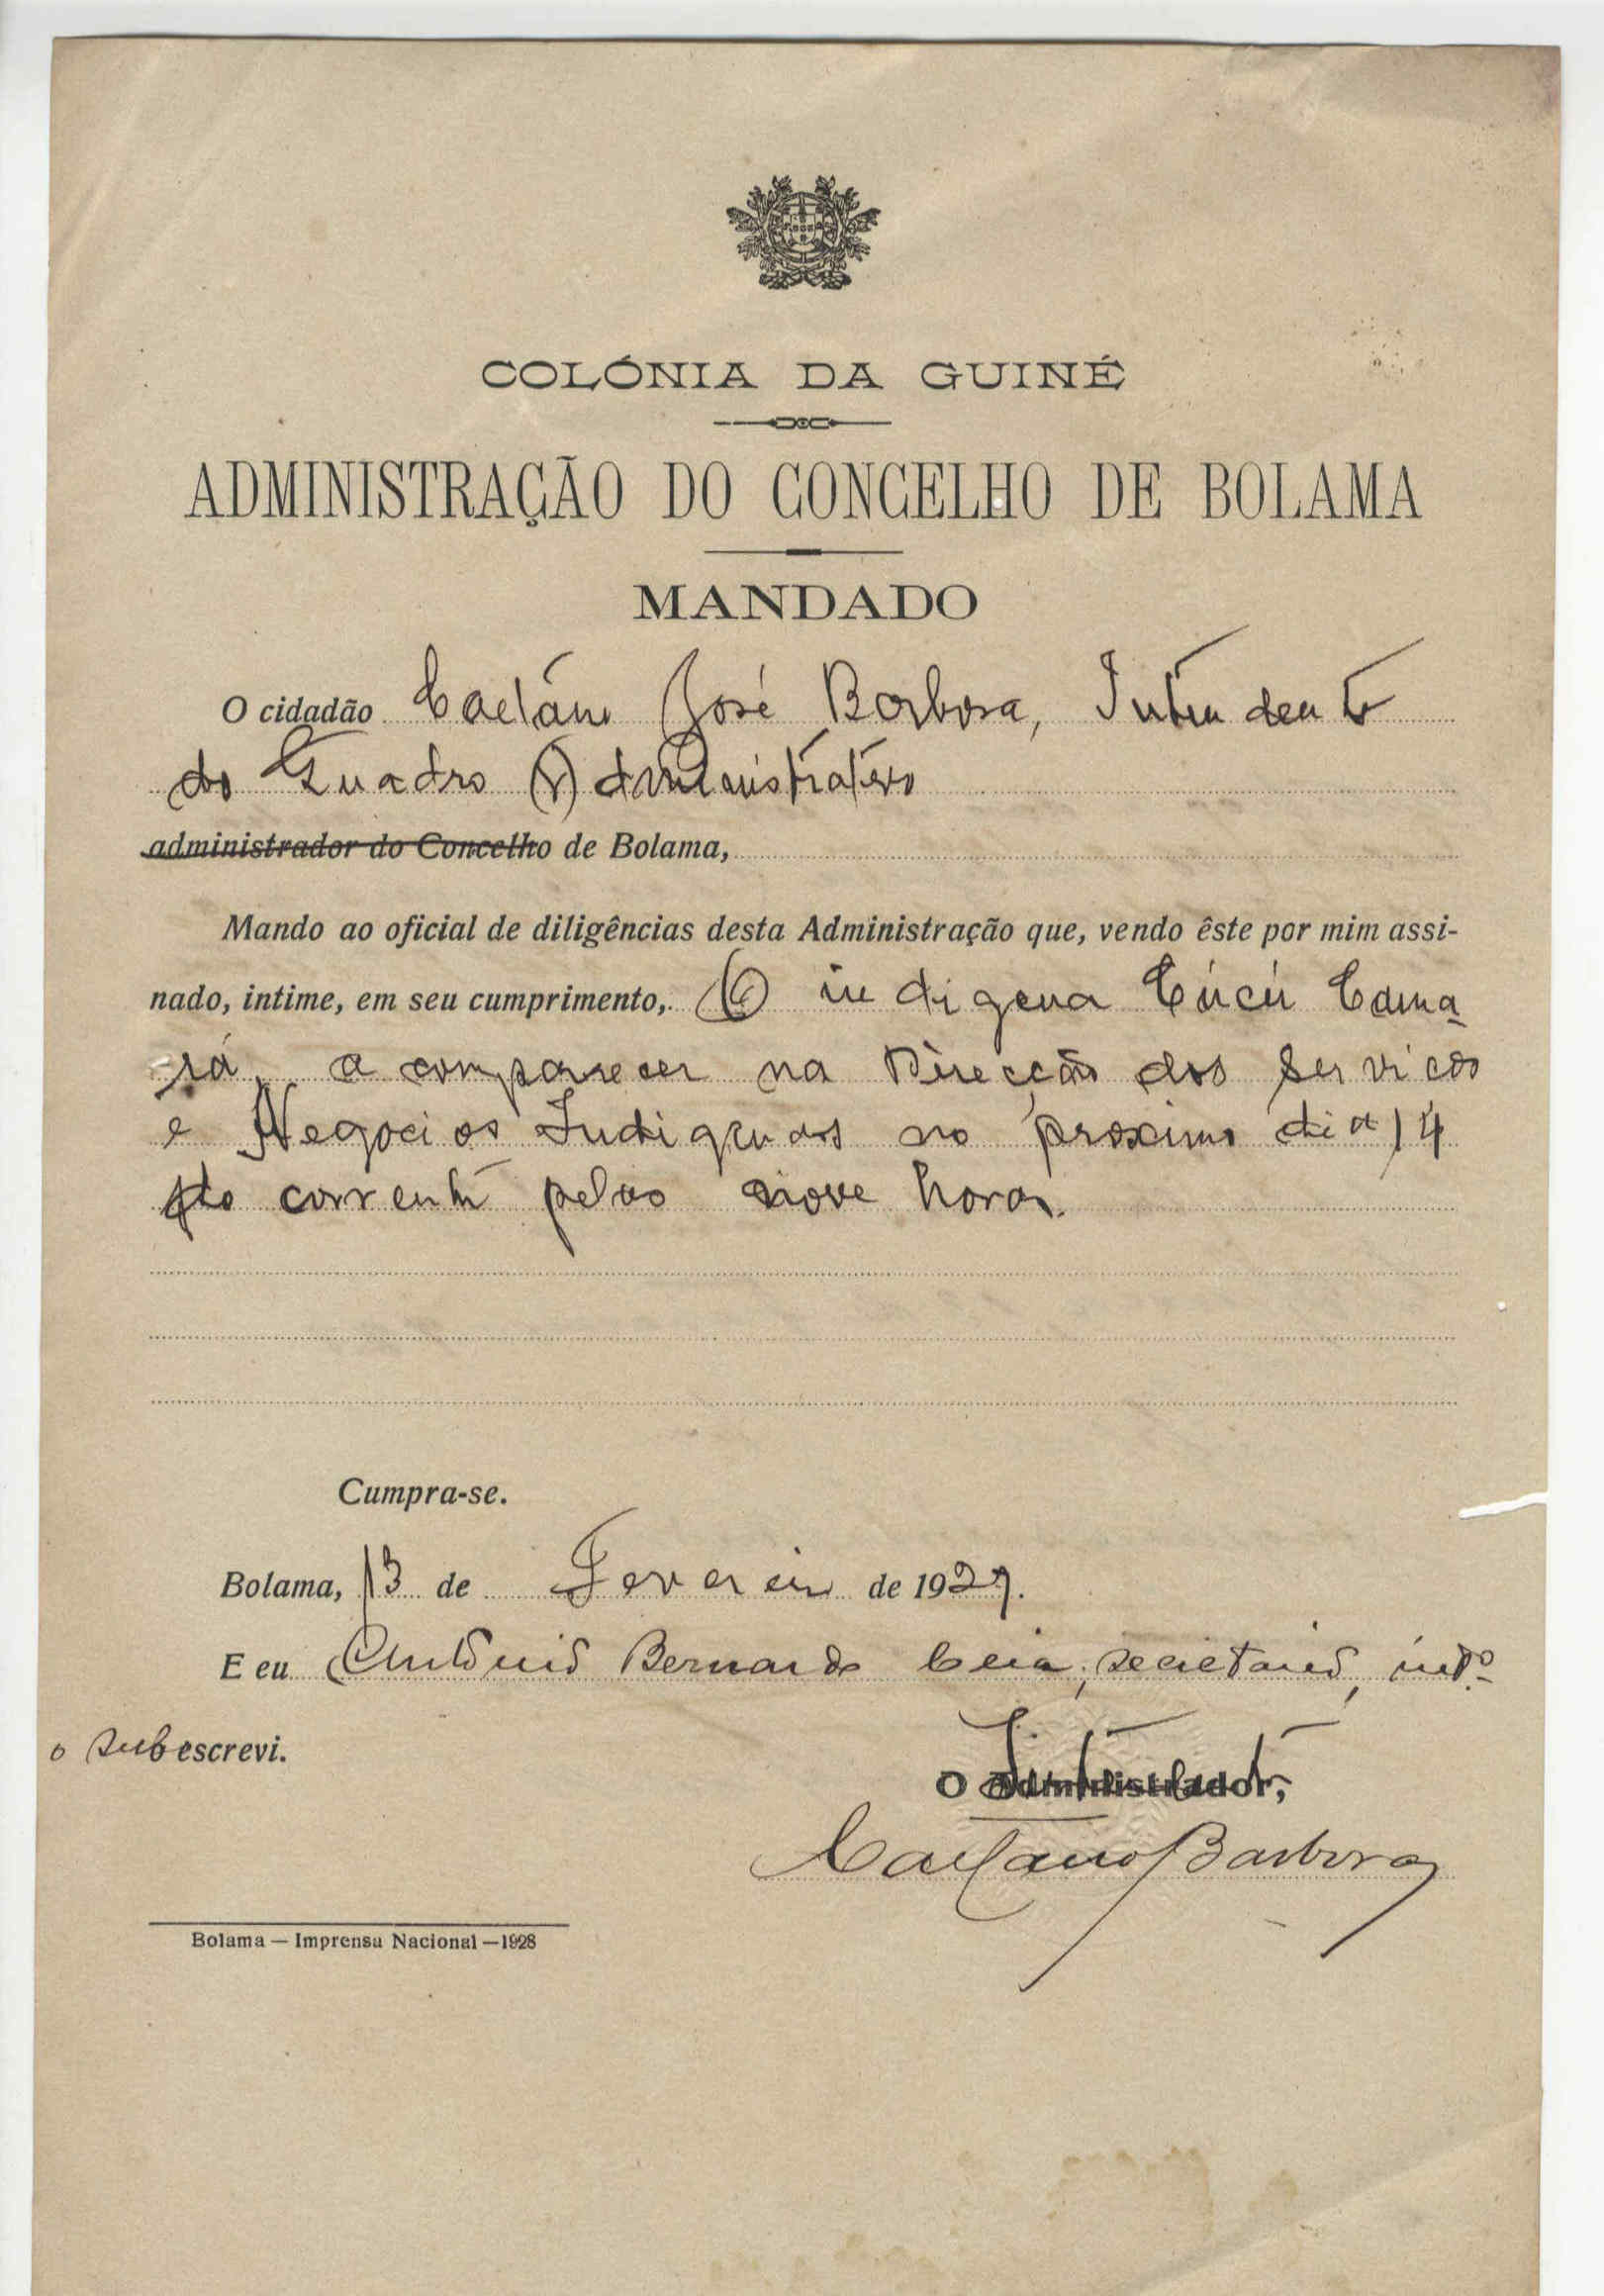 COLÓNIA DA GUINÉ
ADMINISTRAÇÃO DO CONCELHO DE BOLAMA
MANDADO
O cidadão Caetano José Barbosa, Intendente
do Quadro Administrativo
administrador do Concelho de Bolama,
Mando ao oficial de diligências desta Administração que, vendo êste por mim assi-
nado, intime, em seu cumprimento, O indigena Cúcú Cama-
rá, a comparecer na Direcção dos Serviços
e Negocios Indigenas no proximo dia 14
do corrente pelas nove horas.
Cumpra-se.
Bolama, 13 de Fevereiro de 1929.
E eu António Bernardo Ceia, secretario, intº
o subescrevi.
O Intendente
Caetano Barbosa
Bolama — Imprensa Nacional — 1928